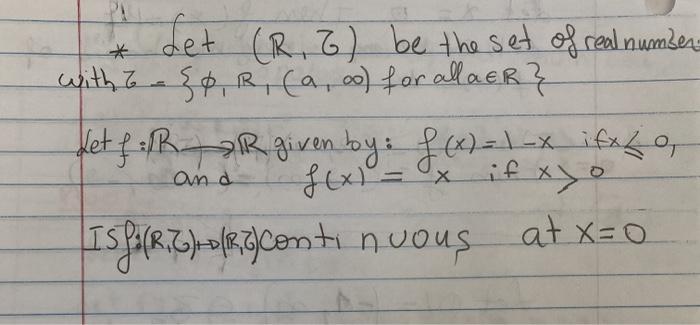 * Let (R, τ) be the set of real number
with τ = {φ, R, (a, ∞) for all a∈R }
Let f: R → R given by: f(x) = 1 - x if x ⩽ 0,
and f(x) = x if x > 0
Is f:(R,τ)→(R,τ) continuous at x=0